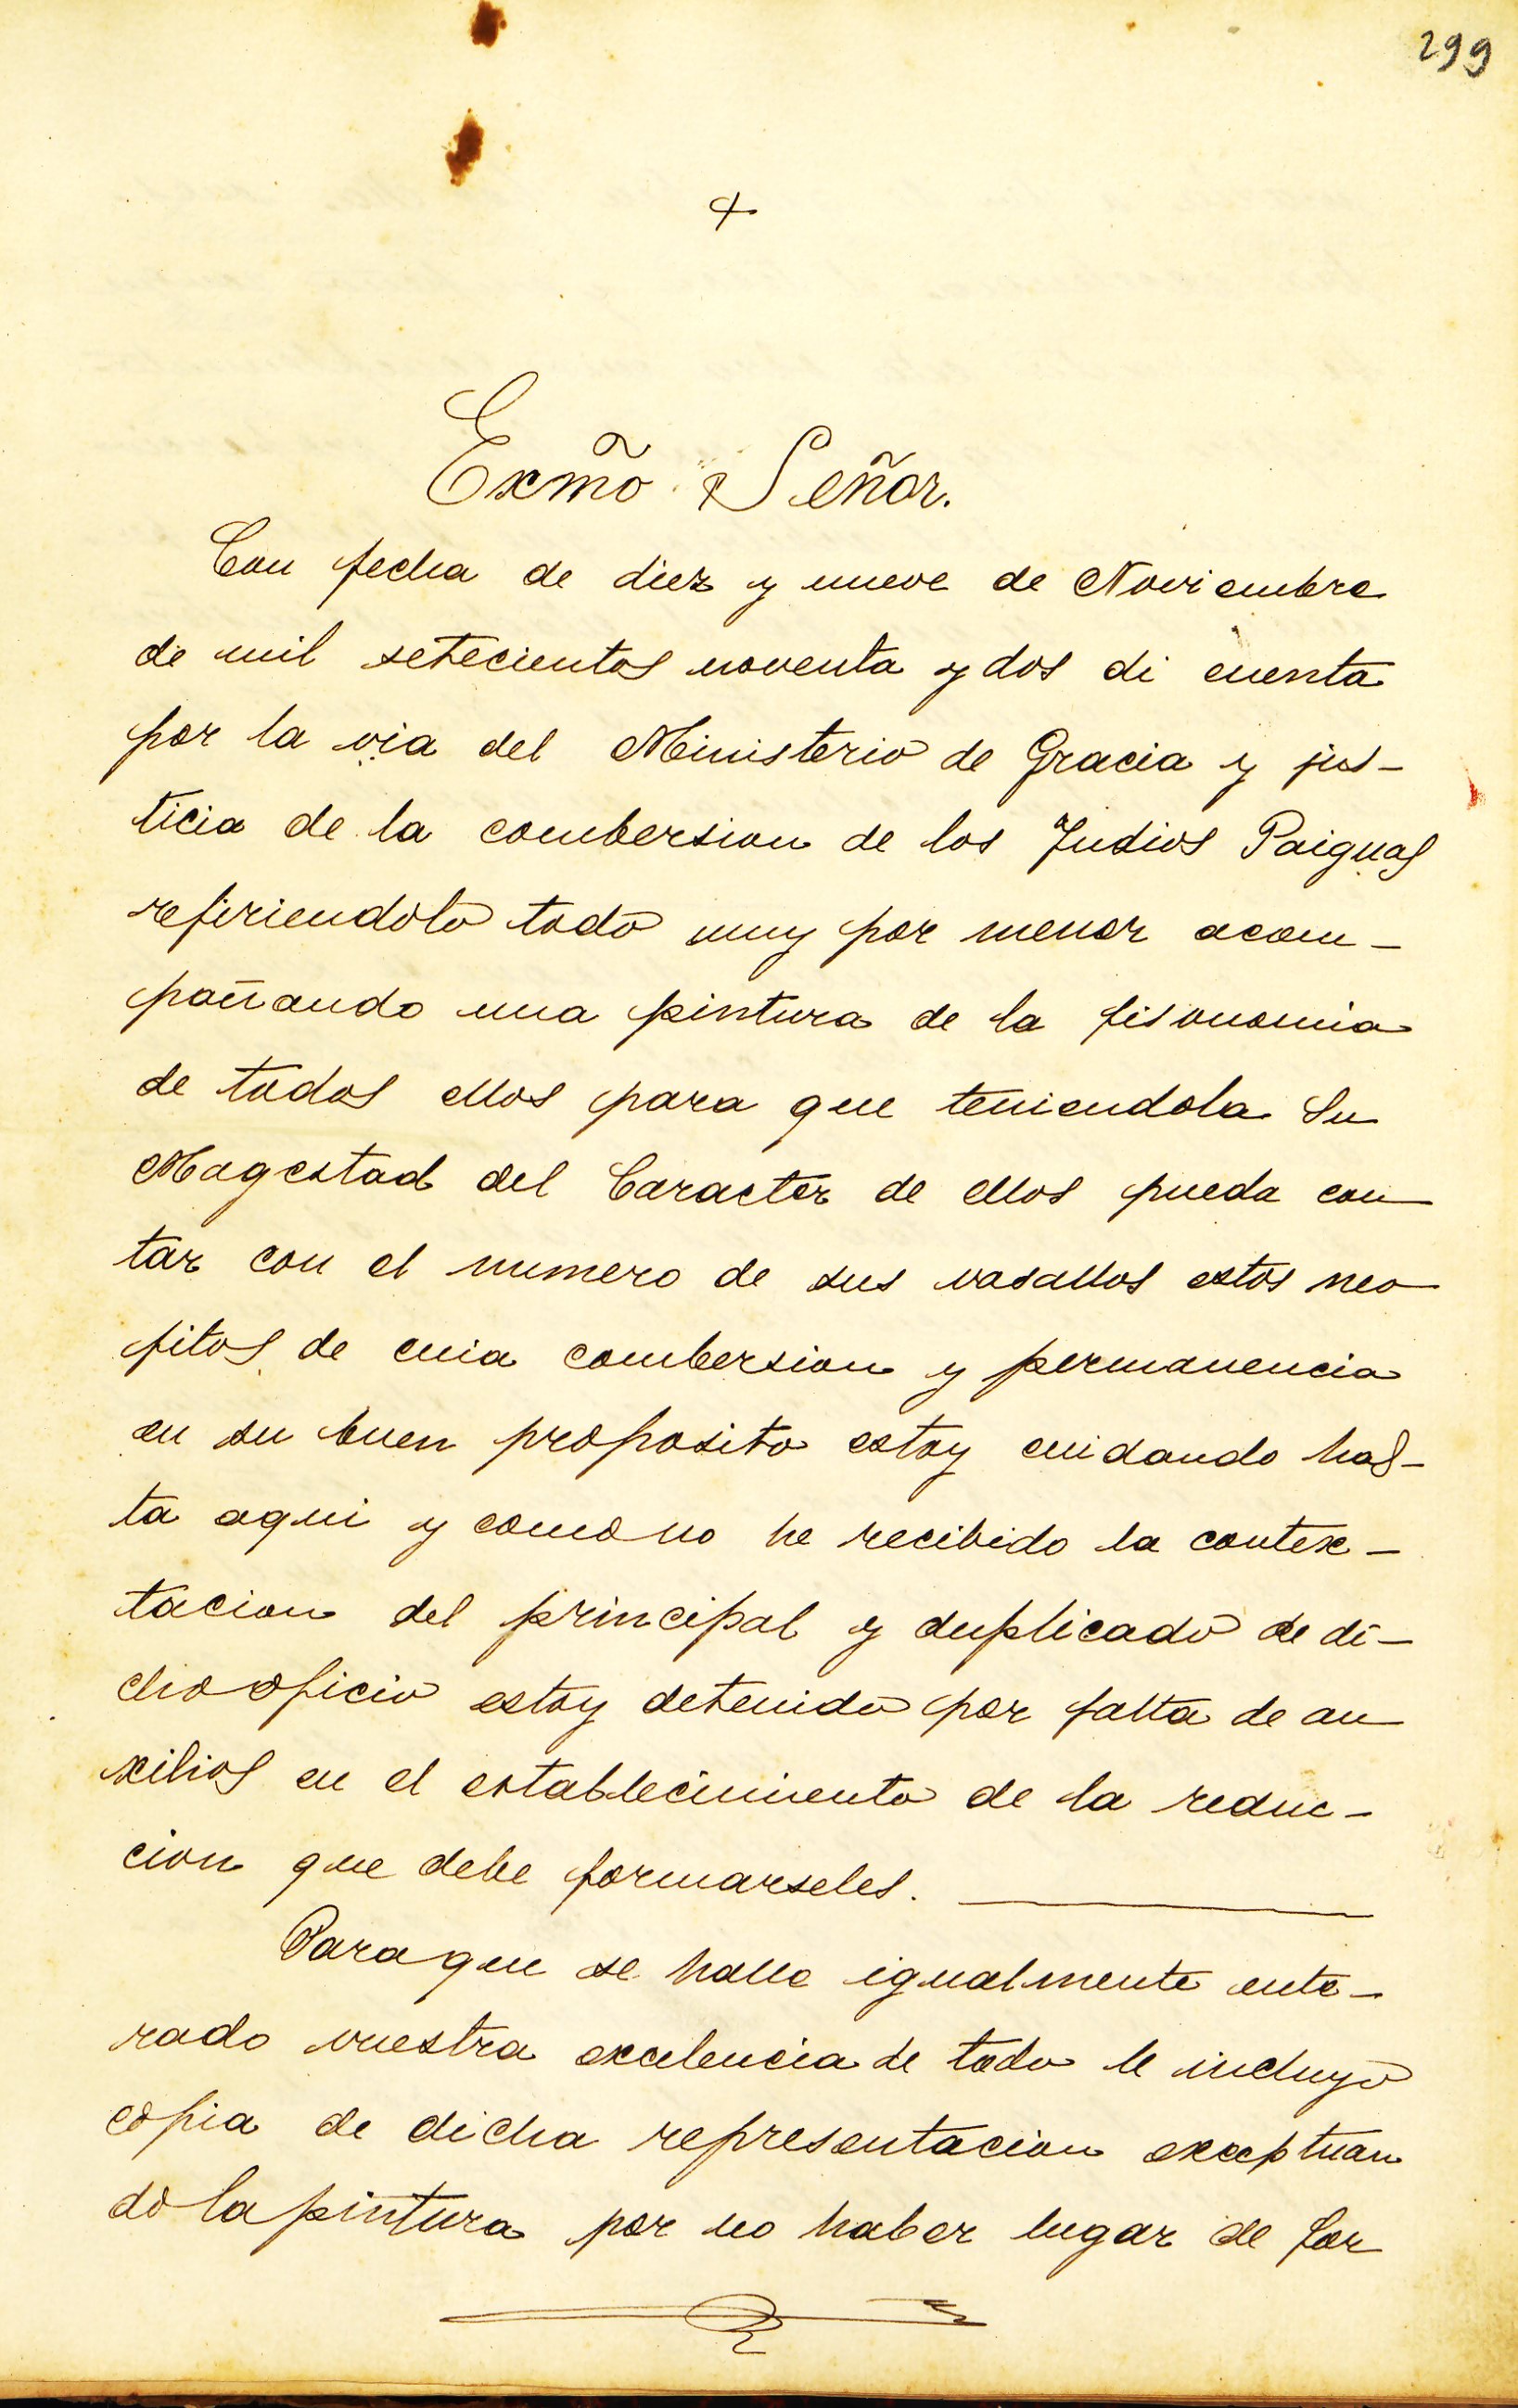 299
+
Exmõ Señor.
Con fecha de diez y nueve de Noviembre
de mil setecientos noventa y dos di cuenta
por la via del Ministerio de Gracia y jus-
ticia de la combersion de los Indios Paiguas
refiriendolo todo muy por menor acom-
pañando una pintura de la fisonomia
de todos ellos para que teniendola Su
Magestad del Caracter de ellos pueda con
tar con el numero de sus vasallos estos neo
fitos de cuia combersion y permanencia
en su buen proposito estoy cuidando has-
ta aqui y como no he recibido la contex-
tacion del principal y duplicado de di-
cho oficio estoy detenido por falta de au
xilios en el establecimiento de la reduc-
cion que debe formarseles.
Para que se halle igualmente ente-
rado vuestra excelencia de todo le incluyo
copia de dicha representacion exceptuan
do la pintura por no haber lugar de for